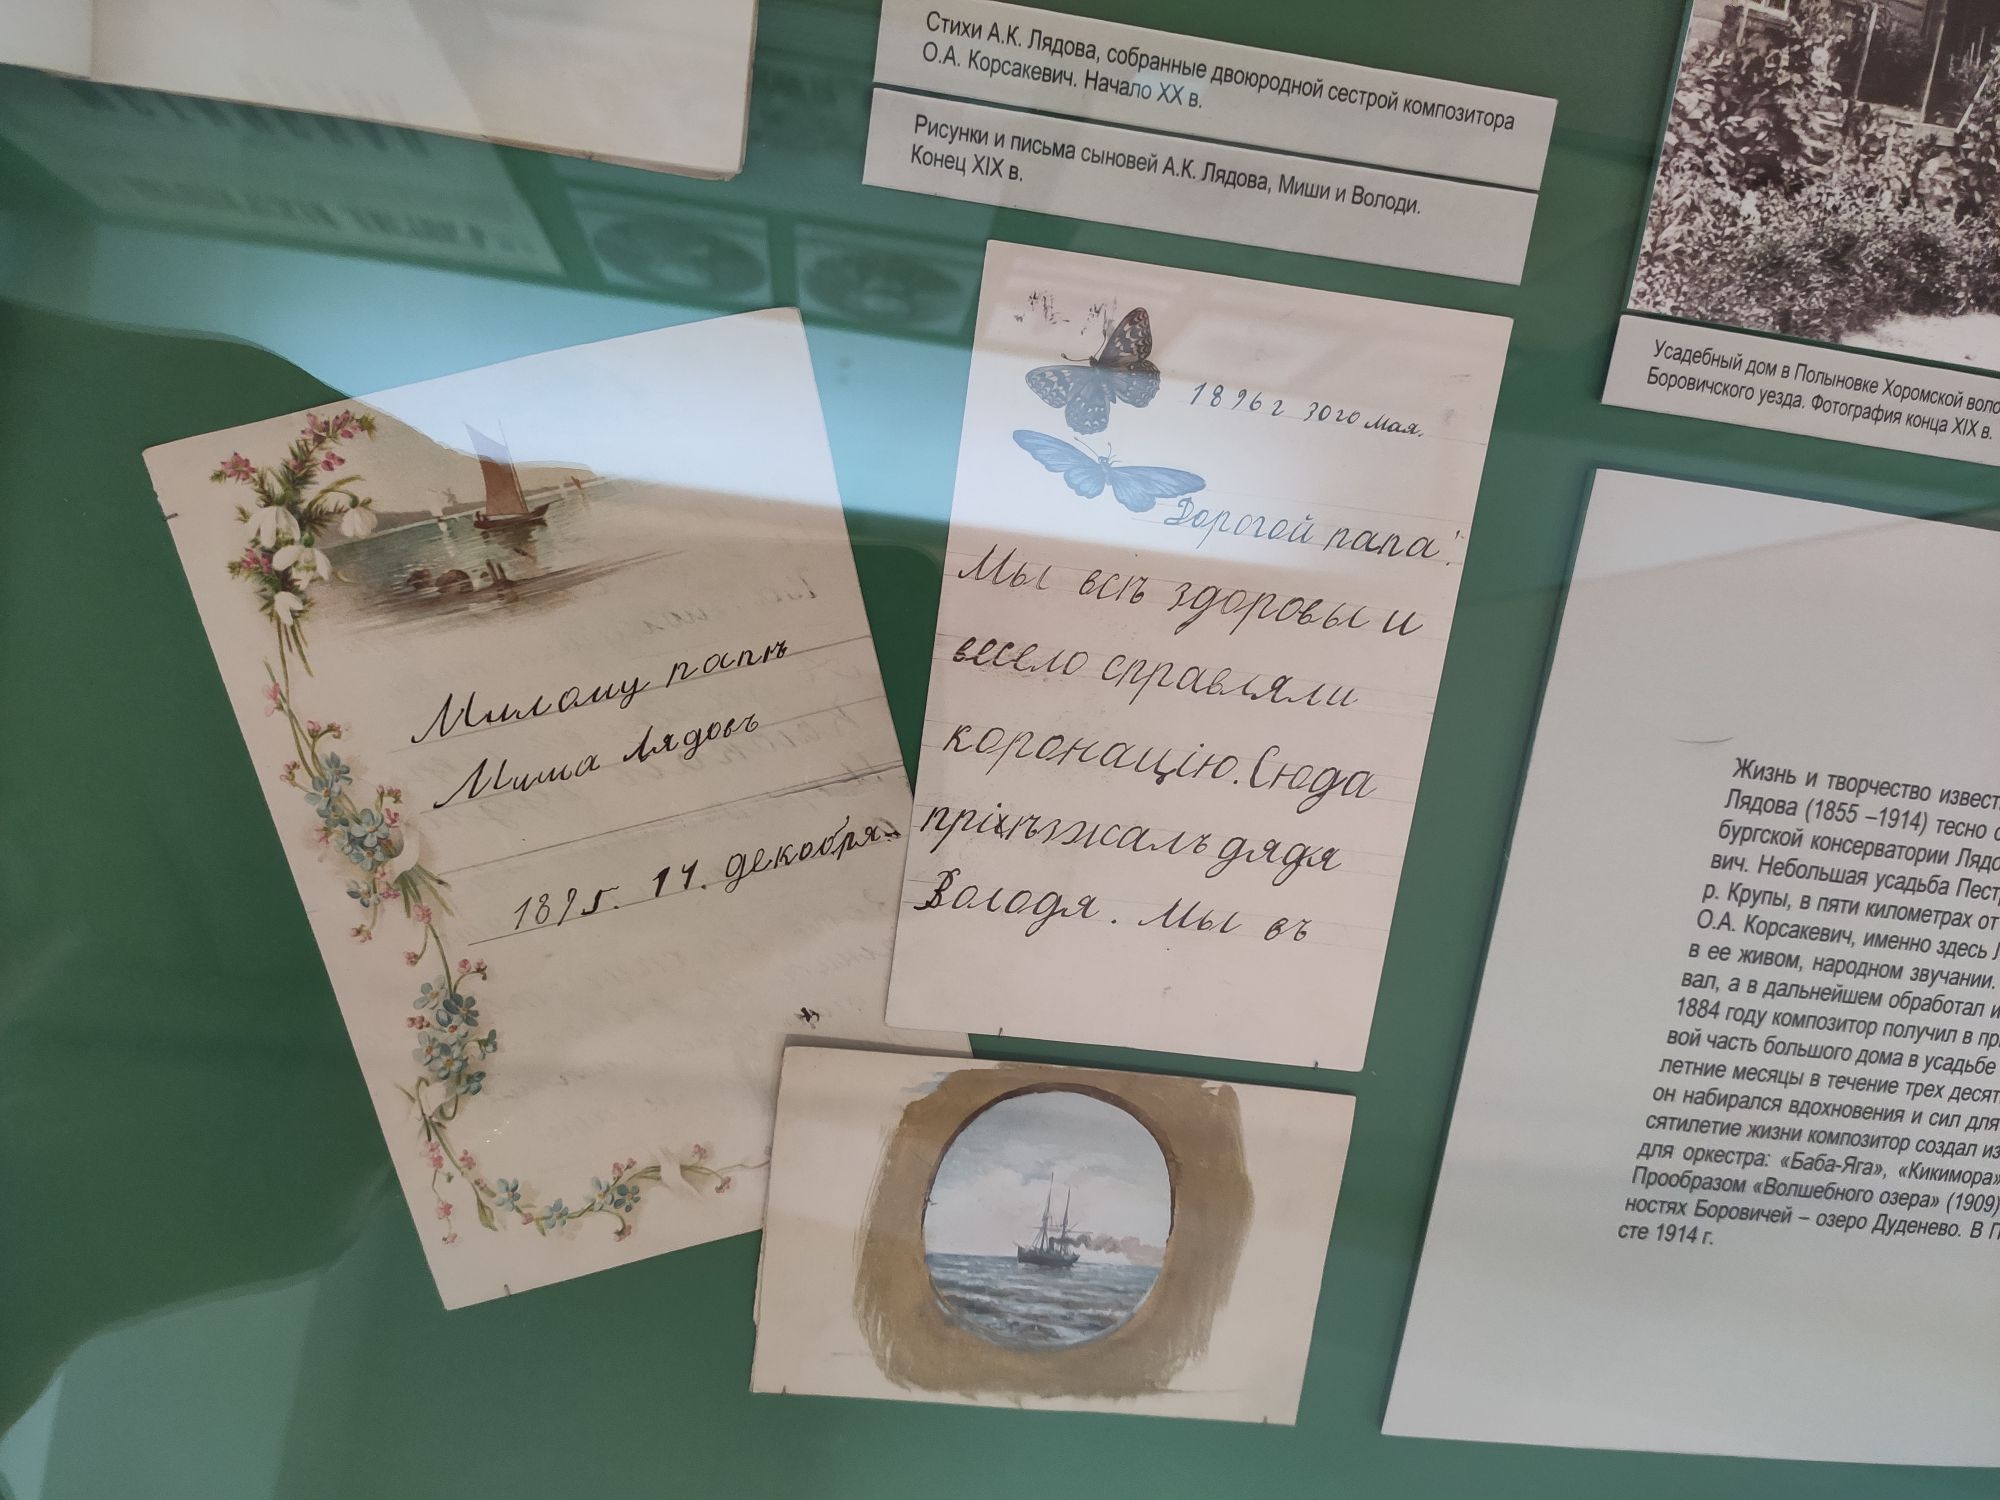 Стихи А.К. Лядова, собранные двоюродной сестрой композитора
О.А. Корсакевич. Начало XX в.
Рисунки и письма сыновей А.К. Лядова, Миши и Володи.
Конец XIX в.
Усадебный дом в Полыновке Хоромской воло
Боровичского уезда. Фотография конца XIX в.
Милому папѣ
Миша Лядовъ
1895. 14. декабря.
1896 г 30го мая.
Дорогой папа!
Мы всѣ здоровы и
весело справляли
коронацію. Сюда
пріѣзжалъ дядя
Володя. Мы въ
Жизнь и творчество извест
Лядова (1855 –1914) тесно с
бургской консерватории Лядо
вич. Небольшая усадьба Пест
р. Крупы, в пяти километрах от
О.А. Корсакевич, именно здесь Л
в ее живом, народном звучании.
вал, а в дальнейшем обработал и
1884 году композитор получил в пр
вой часть большого дома в усадьбе
летние месяцы в течение трех десят
он набирался вдохновения и сил для
сятилетие жизни композитор создал из
для оркестра: «Баба-Яга», «Кикимора»
Прообразом «Волшебного озера» (1909)
ностях Боровичей – озеро Дуденево. В П
сте 1914 г.